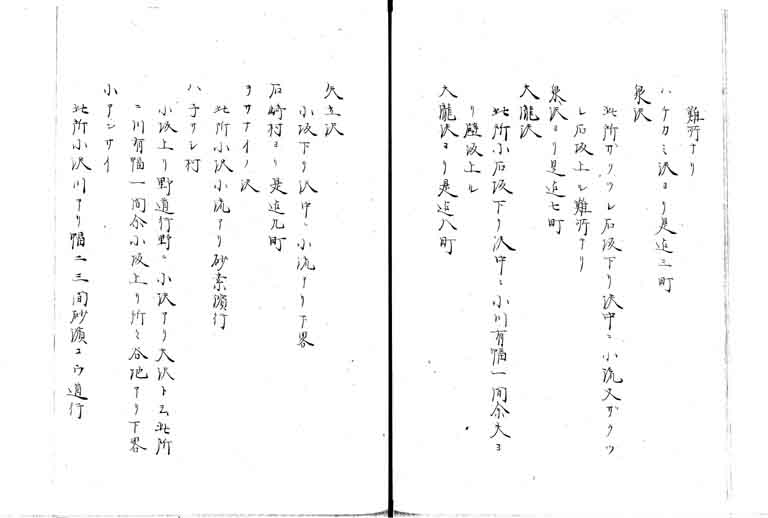 難所ナリ
ハケカミ沢ヨリ是迄三町
泉沢
此所ガツクレ石坂下リ沢中ニ小流又ガクツ
レ石坂上レ難所ナリ
泉沢ヨリ是迄七町
大瀧沢
此所小石坂下リ沢中ニ小川有幅一間余夫ヨ
リ壁坂上ル
大瀧沢ヨリ是迄八町
矢立沢
小坂下リ沢中ニ小流アリ下畧
石崎村ヨリ是迄九町
ヲサナイノ沢
此所小沢小流アリ砂素濱行
ハ子サシ村
小坂上リ野道行野ニ小沢アリ大沢ト云此所
ニ川有幅一間余小坂上リ所々谷地アリ下畧
小アンサイ
此所小沢川アリ幅二三間砂濱ユウ道行